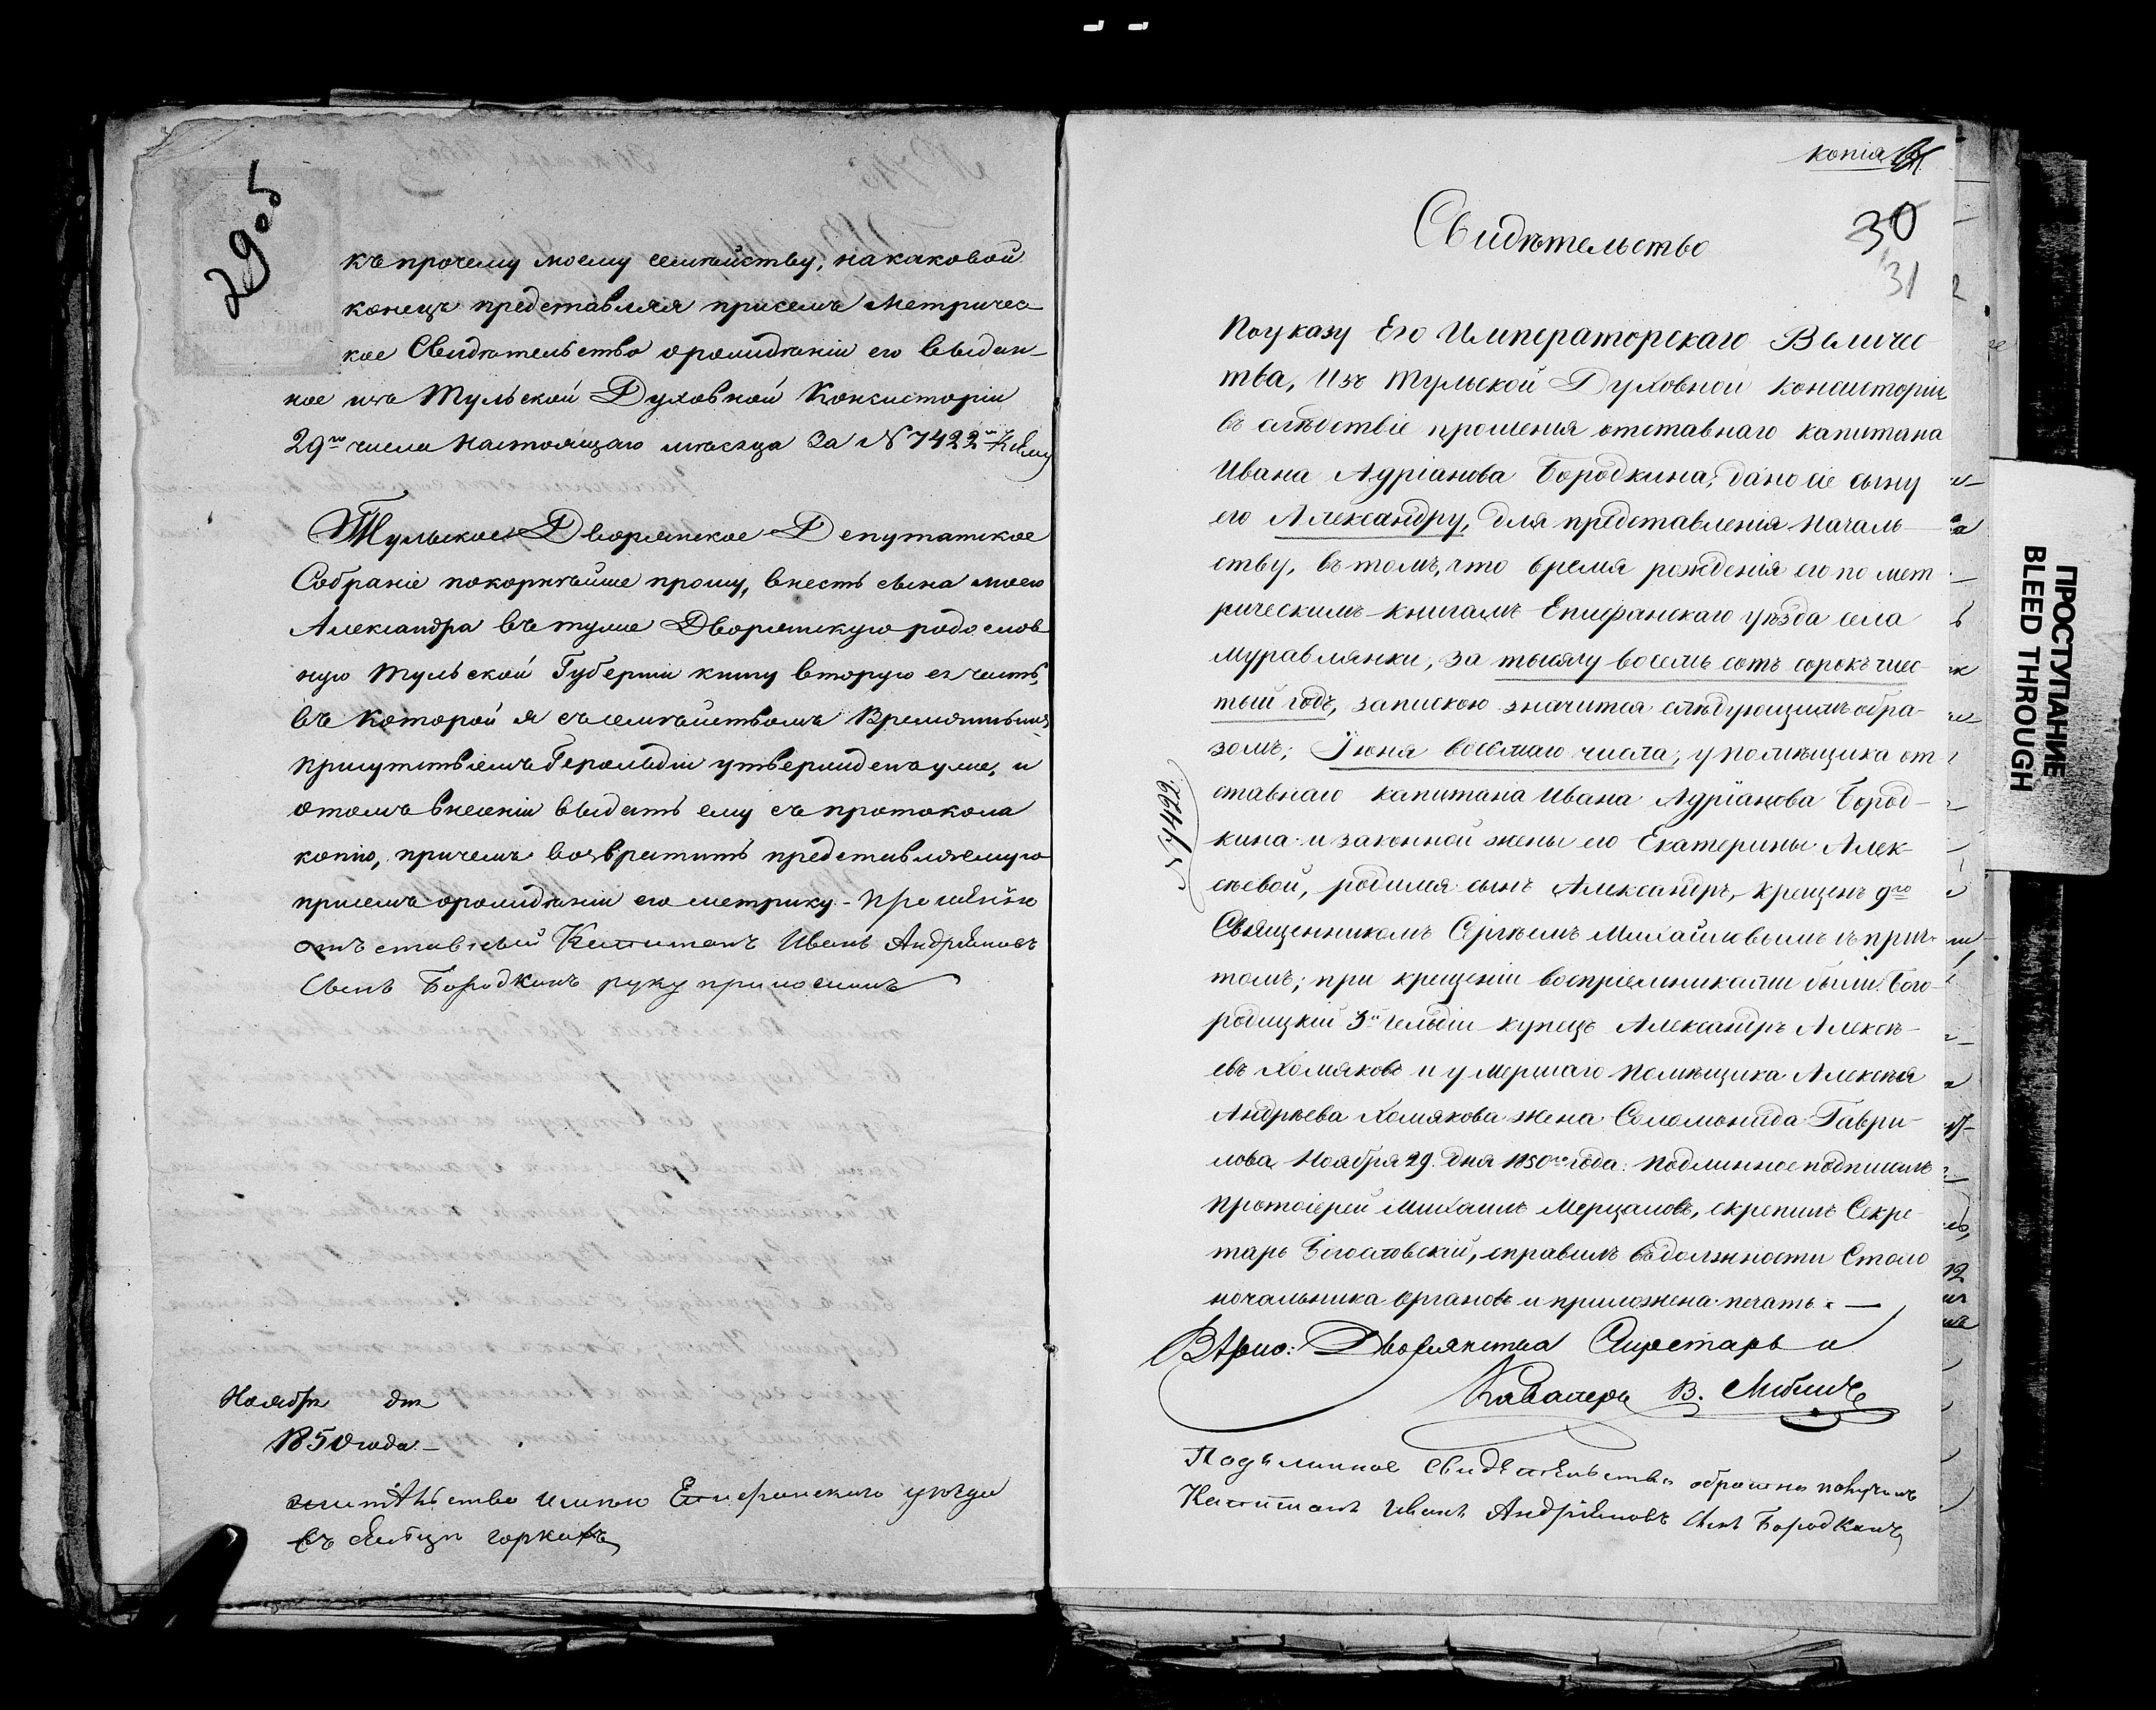 29 об
къ прочему моему семѣйству, на каковой
конецъ представляя присемъ Метричес-
кое Свидѣтельство орождѣніи его выдан-
ное изъ Тульской Духовной Консисторіи
29го числа настоящаго мѣсяца За № 7422м
Тульское Дворянское Депутатское
Собраніе покорнѣйше прошу, внесть сына моего
Александра въ туже Дворянскую родослов
ную Тульской Губерніи книгу вторую ея часть,
въ Которой я съ семѣйствомъ Временнымъ
присутствіемъ Герольдіи утвержденъ уже, и
отомъ внесеніи выдать ему съ протокола
копію, причемъ возвратить представляемую
присемъ орождѣніи его метрику. - Прошенію
отъставной Капитанъ Иванъ Андріяновъ
Сынъ Бородкинъ руку приложилъ
Ноября дня
1850 года. -
жителѣство имѣю Епифанского уѣзда
въ сельцѣ горкахъ
копія
Свидѣтельство
30
31
По указу Его Императорскаго Величес-
тва, Изъ Тульской Духовной Консисторіи
въ слѣдствіе прошенія отставнаго капитана
Ивана Адріанова Бородкина, дано сіе сыну
его Александру, для представленія Началь-
ству, въ томъ, что время рожденія его по мет-
рическимъ книгамъ Епифанскаго уѣзда села
Муравлянки, за тысячу восемь сотъ сорокъ шес
тый годъ, запискою значится слѣдующимъ обра-
зомъ: Іюня восьмаго числа, у помѣщика от
ставнаго капитана Ивана Адріанова Бород-
кина и законной жены его Екатерины Алек-
сѣевой, родился сынъ Александръ, крещенъ 9го
Священникомъ Сергѣемъ Михайловымъ съ прич-
томъ; при крещеніи воспріемниками были: Бого-
родицкій 3й гильдіи купецъ Александръ Алексѣ-
евъ Хомяковъ и умершаго помѣщика Алексѣя
Андрѣева Хомякова жена Соломонида Гаври-
лова, Ноября 29. дня 1850го года. Подлинное подписалъ
Протоіерей Михаилъ Мерцаловъ, скрепилъ Секре-
тарь Богословскій, справилъ въ должности Столо
ночальника Органовъ и приложена печать. —
№ 7422.
Вѣрно: Дворянства Секретарь и
Кавалеръ В.
Подълинное Свидѣтельство обратно получилъ
Капитанъ Иванъ Андріяновъ Сынъ Бородкинъ
ПРОСТУПАНИЕ
BLEED THROUGH